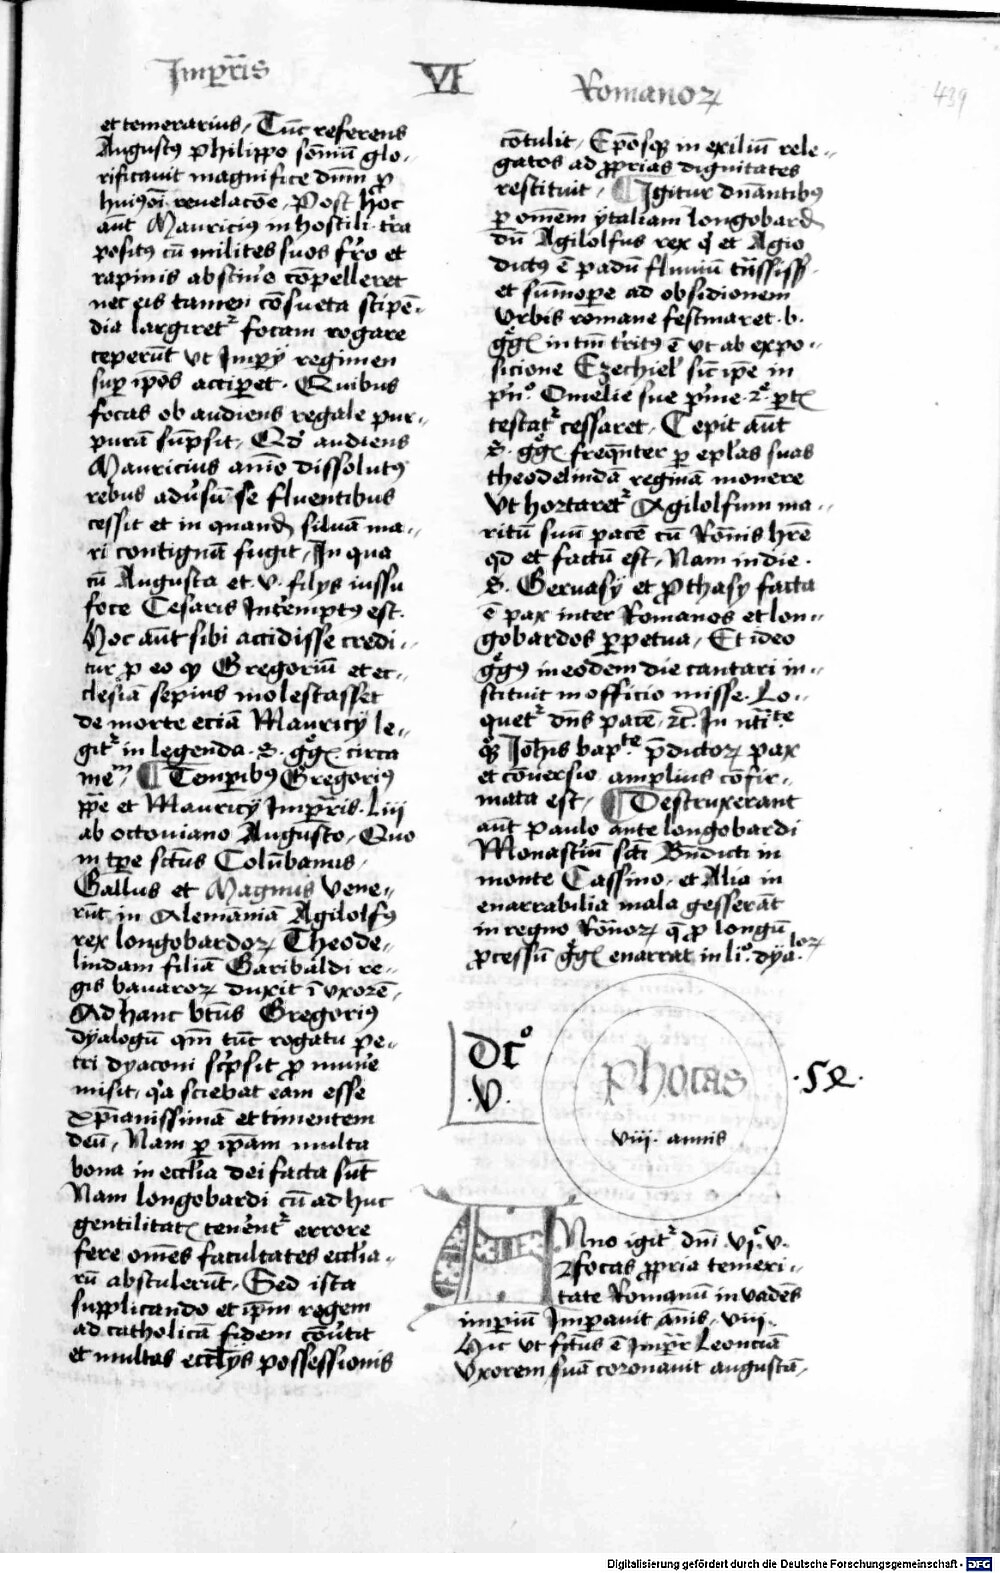 Imꝑr̄is VI Romanoꝝ
439
et temerarius, Tūc referens
Augustꝰ Philippo sōniū glo-
rificauit magnifice dn̄m ꝓ
huiꝰmōi reuelacōe, Post hoc
aūt Mauriciꝰ in hostili
positꝰ cū milites suos et
rapinis abstin̄e cōpelleret
nec eis tamen cōsueta stipē-
dia largiret᷑ focam rogare
ceperūt vt Impij regimen
suꝑ ip̄os acciꝑet. Quibus
focas ob audiens regale pur-
purā sūpsit, Qd̓ audiens
Mauricius aīo dissolutꝰ
rebus adu̓sū se fluentibus
cessit et in quandā siluā ma-
ri contiguā fugit, In qua
cū Augusta et v. filijs iussu
foce Cesaris Intēemptꝰ est.
Hoc aūt sibi accidisse credi-
tur ꝓ eo ꝙ Gregoriū et ec-
clesiā sepius molestasset
de morte eciā Mauricij le-
git᷑ in legenda. S. gg̓ circa
meᵐ ¶ Temꝑibꝰ Gregorij
pp̄e et Mauricij Imꝑr̄is. Liii
ab octouiano Augusto, Quo
in tꝑe sct̄us Colūbanus,
Gallus et Magnus vene-
rūt in Alemaniā Agilolfꝰ
rex longobardoꝝ Theode-
lindam filiā Garibaldi re-
gis bauaroꝝ duxit ī vxorē,
Ad hanc btūs Gregoriꝰ
dyalogū qm̄ tūc rogatu pe-
tri dyaconi sc̓psit ꝓ mun̓e
misit, q̓a sciebat eam esse
xp̄ianissimā et timentem
deū, Nam ꝑ ip̄am multa
bona in eccl̄ia dei facta sūt
Nam longobardi cū ad huc
gentilitatꝭ tenēnt᷑ errore
fere om̄es facultates eccl̄ia-
rū abstulerūt, Sed ista
supplicando et ip̄m regem
ad catholicā fidem cōu̓tit
et multas eccl̄ijs possessionis
cōtulit, Ep̄osqꝫ in exiliū rele-
gatos ad ꝓprias dignitates
restituit, ¶ Igitur dn̄antibꝰ
ꝑ om̄em ytaliam longobardꝭ
Dū Agilolfus rex q̓ et Agio
dictꝰ ē padū fluuiū
et sūmoꝑe ad obsidionem
vrbis romane festinaret. b.
gg̓ in tm̄ t̓ritꝰ ē vt ab expo-
sicione Ezechiel̓ sic̄ ip̄e in
Omelie sue p̓me. 2ᵉ. ꝑtꝭ
testat᷑ cessaret, Cepit aūt
S. gg̓ freqn̄ter ꝑ epl̄as suas
theodelindā reginā monere
vt hortaret᷑ Agilolfum ma-
ritū suū pacē cū Rōnis hr̄e
qd̓ et factū est, Nam in die.
S. Geruasij et ꝓthasij facta
ē pax inter Romanos et lon-
gobardos ꝑpetua, Et ideo
gg̓ꝰ in eodem die cantari in-
stituit in officio misse. Lo-
quet᷑ dn̄s pacē, ꝛc̄. In
Joh̄is bapᵗᵉ p̄dictoꝝ pax
et cōuersio amplius cōfir-
mata est, ¶ Destruxerant
aūt paulo ante longobardi
Monastiū sct̄i Bn̄dicti in
monte Cassino, et Alia in
enarrabilia mala gesserāt
in regno Rōnoꝝ q̄ ꝓ longū
ꝓcessū gg̓ enarrat in li°. dyaˡᵒꝝ
Dc̄°
.V.
Phocas
viij. annis
.52.
ANno igit᷑ dn̄i. vj.ᶜ v.
focas ꝓpria temeri-
tate Romanū inuadēs
imperiū Imꝑauit an̄is, viij.
Hic vt factus ē Imꝑr̄ Leonciā
vxorem suā coronauit augustā,
Digitalisierung gefördert durch die Deutsche Forschungsgemeinschaft - DFG